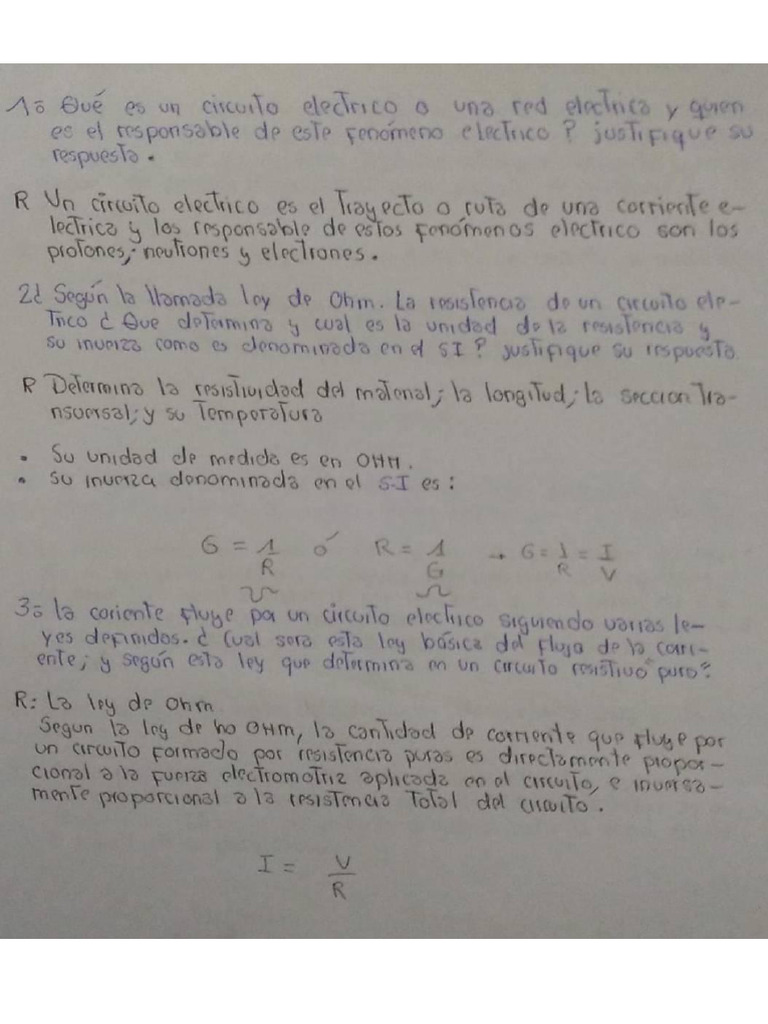 1º Qué es un circuito electrico o una red electrica y quien
es el responsable de este fenómeno electrico? justifique su
respuesta.
R Un circuito electrico es el Trayecto o ruta de una corriente e-
lectrica y los responsable de estos fenómenos electrico son los
protones, neutrones y electrones.
2¿ Según la llamada ley de Ohm. La resistencia de un circuito ele-
trico ¿ Que determina y cual es la unidad de la resistencia y
su inverza como es denominada en el SI? justifique su respuesta.
R Determina la resistividad del material; la longitud; la seccion Tra-
nsversal; y su Temperatura
• Su unidad de medida es en OHM.
• Su inverza denominada en el S.I es:
G = 1/R ó R = 1/G → G = 1/R = I/V
3º la coriente fluye por un circuito electrico siguiendo varias le-
yes definidos. ¿ Cual sera esta ley básica del flujo de la corri-
ente; y según esta ley que determina en un circuito resistivo "puro"?
R: La ley de Ohm
Segun la ley de ho OHM, la cantidad de corriente que fluye por
un circuito formado por resistencia puras es directamente propor-
cional a la fuerza electromotriz aplicada en el circuito, e inversa-
mente proporcional a la resistencia Total del circuito.
I = V/R